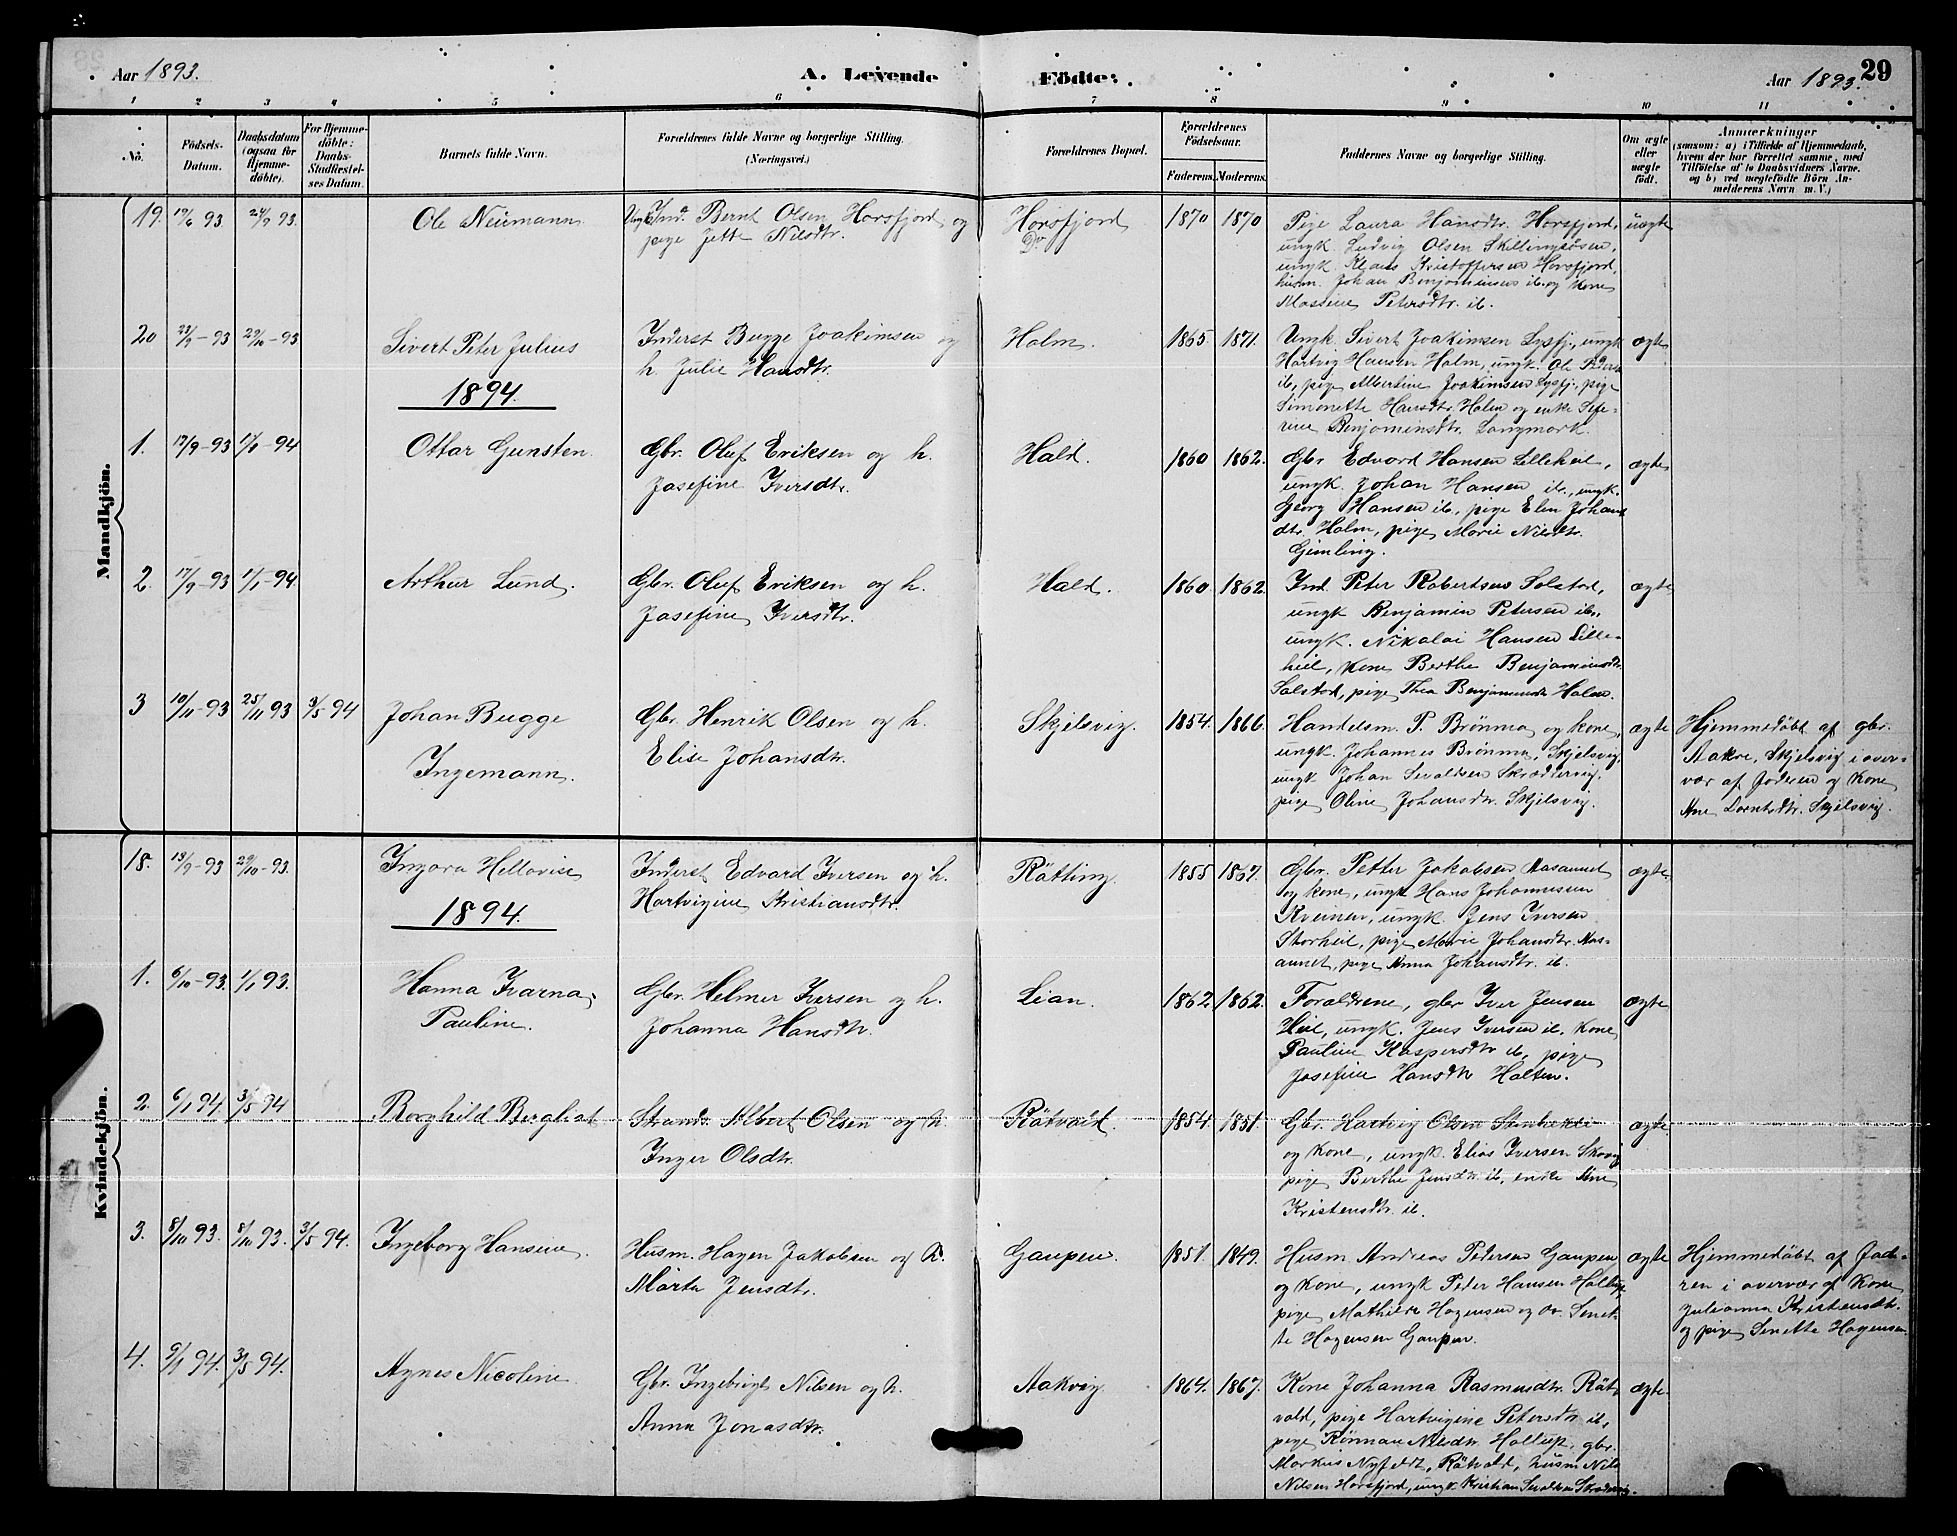 Aar 1893.
A. Levende Födte.
Aar 1893.
29
1 2 3 4 5 6 7 8 9 10 11
No.
Födsels-Datum.
Daabsdatum (ogsaa for Hjemme-döbte).
For Hjemme-döbte: Daabs-Stadfæstel-ses Datum.
Barnets fulde Navn.
Forældrenes fulde Navne og borgerlige Stilling. (Næringsvei.)
Forældrenes Bopæl.
Forældrenes Födselsaar.
Faderens. Moderens.
Faddernes Navne og borgerlige Stilling.
Om ægte eller uægte födt.
Anmærkninger
(saasom: a) i Tilfælde af Hjemmedaab,
hvem der har forrettet samme, med
Tilföielse af to Daabsvidners Navne,
og b) ved uægtefödte Börn An-
melderens Navn m. V.)
Mandkjön.
19. 19/6 93 24/9 93. Ole Neumann
Ungk. Ind. Bernt Olsen Horsfjord og
pige Jette Nilsdtr.
Horsfjord
Do
1870 1870
Pige Laura Hansdtr. Horsfjord,
ungk. Ludvig Olsen
ungk. Klaus Kristoffersen Horsfjord,
husm. Johan Benjaminsen ib. og Kone
Massine Petersdtr. ib.
uægte
20 22/9-93 29/10-93 Sivert Peter Julius
Inderst Bugge Joakimsen og
h. Julie Hansdtr.
Holm.
1865. 1871.
Ungk. Sivert Joakimsen Lysfj., ungk
Hartvig Hansen Holm, ungk. Ole
ib, pige Albertine Joakimsen Lysfj., pige
Simonette Hansdtr. Holm og enke Sefe-
rine Benjaminsdtr. Langmork.
ægte
1894.
1. 17/9-93 1/1-94 Ottar Gunsten.
Gbr. Oluf Eriksen og h.
Josefine Iversdtr.
Hald.
1860 1862.
Gbr Edvard Hansen Lilleheil,
ungk. Johan Hansen ib., ungk.
Georg Hansen ib, pige Elen Johans
dtr. Holm, pige Marie Nilsdtr.
Gimling.
ægte
2. 17/9-93 1/1-94 Arthur Lund.
Gbr. Oluf Eriksen og h.
Josefine Iversdtr.
Hald.
1860 1862.
Ind. Peter Robertsen Solstad,
ungk Benjamin Petersen ib.,
ungk. Nikolai Hansen Lille-
heil, Kone Berthe Benjaminsdtr.
Solstad, pige Thea Benjaminsdtr Holm.
ægte
3 10/11-93 25/11 93 3/5 94 Johan Bugge
Ingemann.
Gbr. Henrik Olsen og h.
Elise Johansdtr.
Skjelsvig.
1854. 1866.
Handelsm. P. Brönmo og kone,
ungk. Johannes Brönmo, Skjelsvig,
ungk Johan Sivaldsen
pige Oline Johansdtr. Skjelsvig.
ægte
Hjemmedöbt af gbr.
Aakre, Skjelsvig i over-
vær af Faderen og Kone
Ane Lorntsdtr. Skjelsvig.
Kvindekjön.
18. 13/9-93 29/10-93. Ingara Hellovise
Inderst Edvard Iversen og h.
Hartvigine Kristiansdtr.
Rötting.
1855 1867.
Gbr. Petter Jakobsen Aasaunet
og kone, ungk Hans Johannesen
Kveinen, ungk. Jens Iversen
Storheil, pige Marie Johansdtr. Aas-
aunet, pige Anna Johansdtr. ib.
ægte.
1894.
1. 6/10-93. 1/1 93. Hanna Ivarna
Pauline.
Gbr. Helmer Iversen og h.
Johanna Hansdtr.
Lian.
1862. 1862.
Forældrene, gbr Iver Jensen
Heil, ungk. Jens Iversen ib. Kone
Pauline Kaspersdtr ib, pige
Josefine Hansdtr Holten.
ægte
2. 6/1 94. 3/5 94 Borghild Bergliot
Strands. Albert Olsen og h.
Inger Olsdtr.
Råtvold.
1854. 1851.
Gbr. Hartvig Olsen
og Kone, ungk. Elias Iversen
pige Berthe Jensdtr ib, enke Ane
Kristensdtr. ib.
ægte.
3. 8/10 93. 8/10 93. 3/5 94. Ingeborg Hansine.
Husm. Hagen Jakobsen og h.
Märta Jensdtr.
Gaupen.
1851. 1849.
Husm Andreas Pedersen Gaupen
og Kone, ungk Peter Hansen
pige Mathilde Hagensen og do. Senet-
te Hagensen Gaupen.
ægte
Hjemmedöbt af Fade-
ren i overvær af Kone
Julianna Kristensdtr.
og pige Senette Hagensen.
4. 9/1 94. 3/5 94. Agnes Nicoline.
Gbr. Ingebrigt Nilsen og h.
Anna Jonasdtr.
Aakvig
1864. 1867.
Kone Johanna Rasmusdtr. Råt-
vold, pige Hartvigine Petersdtr ib,
pige Nilsdtr gbr.
Markus Råtvold, husm Nils
Nilsen Horsfjord, ungk Kristian
ægte.